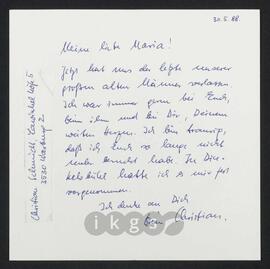 30.5.88.
Meine liebe Maria!
Jetzt hat uns der letzte unserer
großen alten Männer verlassen.
Ich war immer gern bei Euch,
bei ihm und bei Dir, Deinem
weiten Herzen. Ich bin traurig,
daß ich Euch so lange nicht
mehr besucht habe. In Din-
kelsbühl hatte ich es mir fest
vorgenommen.
Ich denke an Dich
Dein Christian.
Christian Schmidt
3530 Warburg 2
ikg